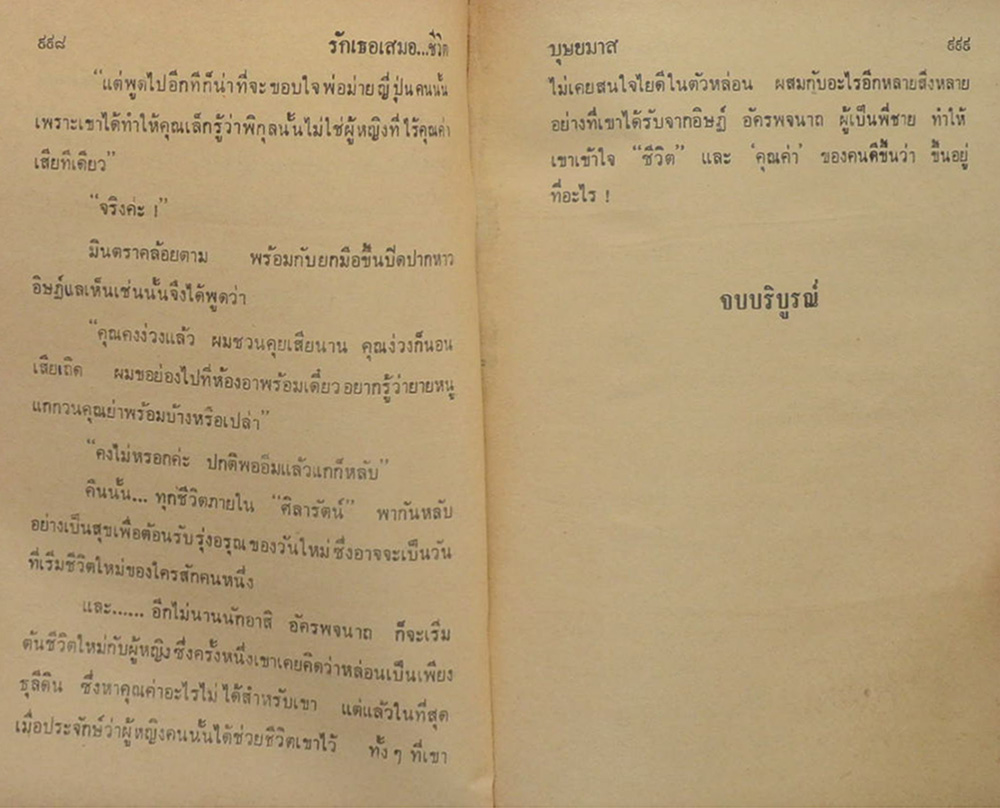 ๙๙๘
รักเธอเสมอ...ชีวิต
“แต่พูดไปอีกทีก็น่าที่จะขอบใจพ่อม่ายญี่ปุ่นคนนั้น
เพราะเขาได้ทำให้คุณเล็กรู้ว่าพิกุลนั้นไม่ใช่ผู้หญิงที่ไร้คุณค่า
เสียทีเดียว”
“จริงค่ะ !”
มินตราคล้อยตาม พร้อมกับยกมือขึ้นปิดปากหาว
อิษฏ์แลเห็นเช่นนั้นจึงได้พูดว่า
“คุณคงง่วงแล้ว ผมชวนคุยเสียนาน คุณง่วงก็นอน
เสียเถิด ผมขอย่องไปที่ห้องอาพร้อมเดี๋ยวอยากรู้ว่ายายหนู
แกกวนคุณย่าพร้อมบ้างหรือเปล่า”
“คงไม่หรอกค่ะ ปกติพออิ่มแล้วแกก็หลับ”
คืนนั้น... ทุกชีวิตภายใน “ศิลารัตน์” พากันหลับ
อย่างเป็นสุขเพื่อต้อนรับรุ่งอรุณของวันใหม่ ซึ่งอาจจะเป็นวัน
ที่เริ่มชีวิตใหม่ของใครสักคนหนึ่ง
และ...... อีกไม่นานนักอาสิ อัครพจนาถ ก็จะเริ่ม
ต้นชีวิตใหม่กับผู้หญิงซึ่งครั้งหนึ่งเขาเคยคิดว่าหล่อนเป็นเพียง
ธุลีดิน ซึ่งหาคุณค่าอะไรไม่ได้สำหรับเขา แต่แล้วในที่สุด
เมื่อประจักษ์ว่าผู้หญิงคนนั้นได้ช่วยชีวิตเขาไว้ ทั้ง ๆ ที่เขา
บุษยมาส
๙๙๙
ไม่เคยสนใจไยดีในตัวหล่อน ผสมกับอะไรอีกหลายสิ่งหลาย
อย่างที่เขาได้รับจากอิษฏ์ อัครพจนาถ ผู้เป็นพี่ชาย ทำให้
เขาเข้าใจ “ชีวิต” และ ‘คุณค่า’ ของคนดีขึ้นว่า ขึ้นอยู่
ที่อะไร !
จบบริบูรณ์